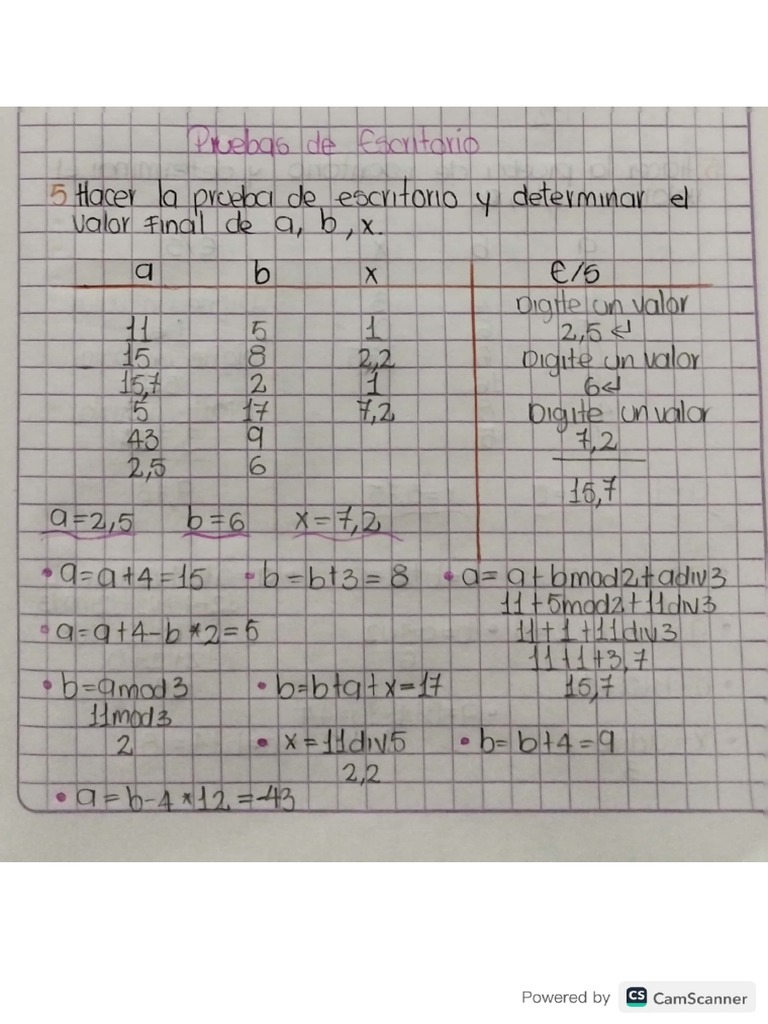 Pruebas de Escritorio
5 Hacer la prueba de escritorio y determinar el
valor Final de a, b, x.
a b x E/S
Digite un valor
11 5 1 2,5 ↵
15 8 2,2 Digite un valor
15,7 2 1 6↵
5 17 7,2 Digite un valor
43 9 7,2
2,5 6 15,7
a=2,5 b=6 x=7,2
• a=a+4=15 • b=b+3=8 • a= a+bmod2+adiv3
11+5mod2+11div3
• a=a+4-b*2=5 11+1+11div3
11+1+3,7
• b=amod3 • b=b+a+x=17 15,7
11mod3
2 • x=11div5 • b= b+4=9
2,2
• a=b-4*12=-43
Powered by CS CamScanner